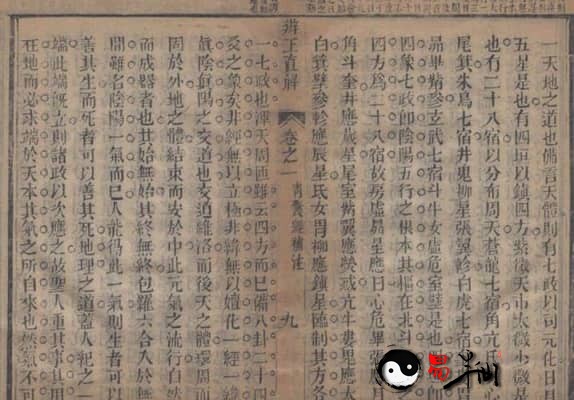 一天地之道也備言天體則有七政以司元化日月
五星是也有四垣以鎮四方紫微天市太微少微
也有二十八宿以分布周天蒼龍七宿角亢
尾箕朱鳥七宿井鬼柳星張翼軫白虎七宿
昴畢觜參玄武七宿斗牛女虛危室壁是也
四象七政即陰陽五行之根本其樞在北斗
四方爲二十八宿故房虛昴星應日心危畢張
角斗奎井應歲星尾室觜翼應熒惑亢牛婁應太
白箕壁參軫應辰星氐女胃柳應鎮星制其方各
辨正直解
卷之一
青囊經補注
九
一七政也渾天周匝雖云四方而已備八卦二十四
爻之象矣非經無以立極非緯無以嬗化一經一緯
真陰真陽之交道也交道維絡而後天之體環周而
固於外地之體結束而安於中此元氣之流行自然
而成器者也其始無始其終無終包羅六合入於無
間雖名陰陽一氣而已人能得此一氣則生者可以
善其生而死者可以善其死地理之道蓋人紀之一
端此端既立則諸政以次應之故聖人重其事其用
在地而必求端於天本其氣之所自來也然氣不可